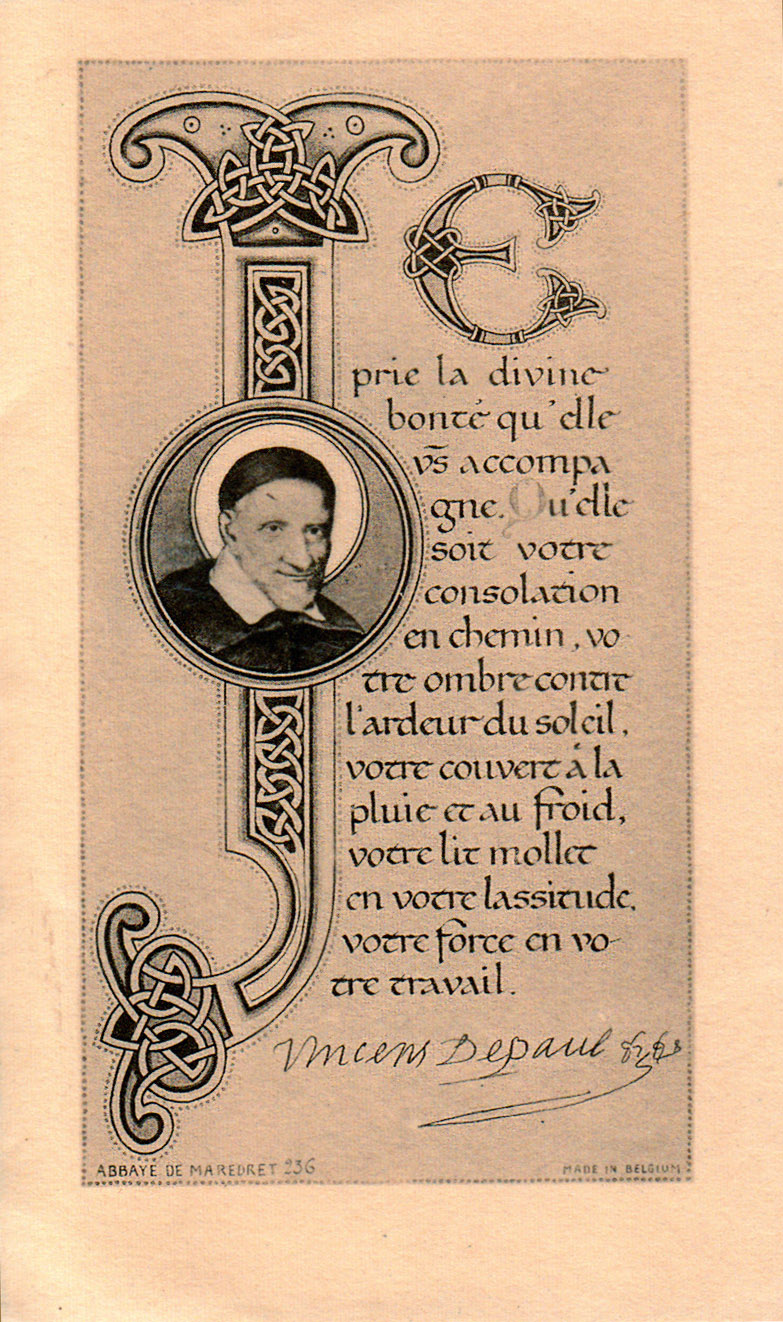 JE
prie la divine
bonté qu'elle
vs̄ accompa
gne. Qu'elle
soit votre
consolation
en chemin, vo-
tre ombre contre
l'ardeur du soleil,
votre couvert à la
pluie et au froid,
votre lit mollet
en votre lassitude,
votre force en vo-
tre travail.
Vincens Depaul
ABBAYE DE MAREDRET 236
MADE IN BELGIUM